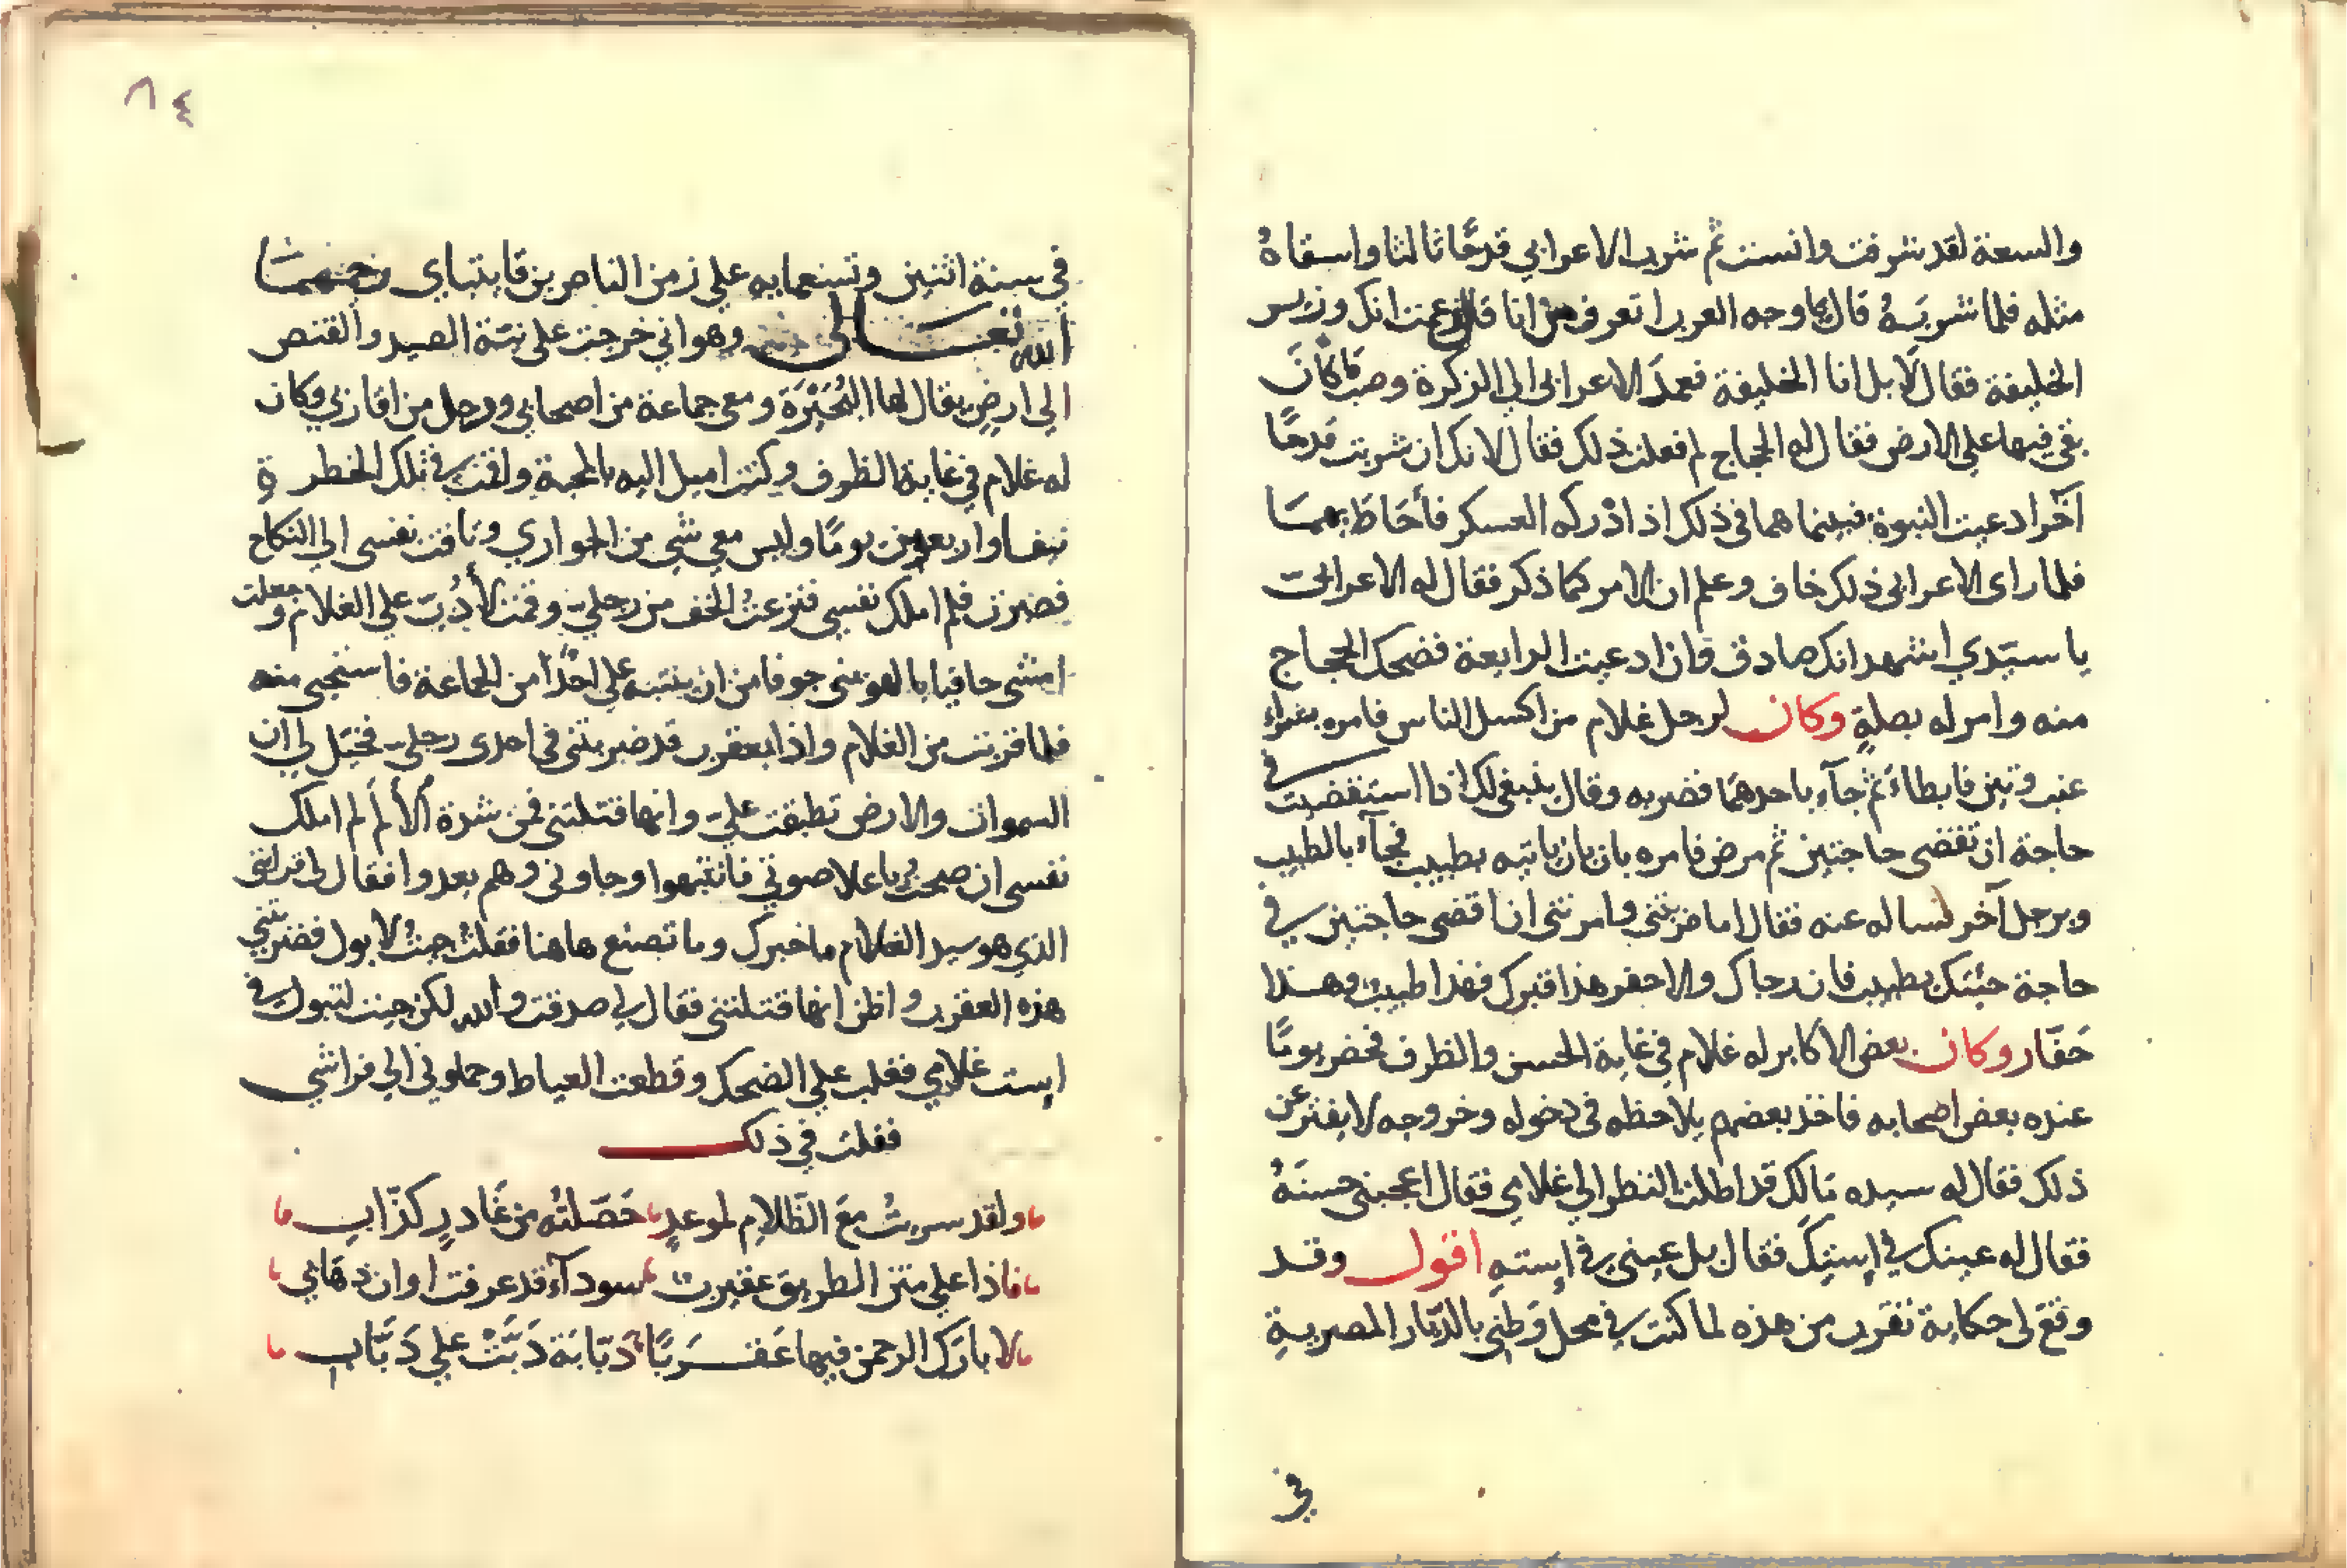 والسعة لقد شرفت وانست ثم شرب الاعرابي قدحًا ثالثا واسقاهُ
مثله فلما شربَهُ قال يا وجه العرب اتعرف من انا قال زعمت انك وزير
الخليفة فقال لا بل انا الخليفة فعمدَ الاعرابي الي الزكرة وصب ما كانَ
بقي فيها علي الارض فقال له الحجاج لم فعلت ذلك فقال لانك ان شربت قدحًا
آخرا دعيت النبوة فبينما هما في ذلك اذ ادركه العسكر فأحَاطَ بهمَا
فلما راى الاعرابي ذلك خاف وعلم ان الامر كما ذكر فقال له الاعرابي
يا سيّدي اشهد انك صادق فان ادعيت الرابعة فضحك الحجاج
منه وامر له بصلةٍ وكان لرجل غلام من اكسل الناس فامره بشراء
عنب وتين فابطاءَ ثم جآء باحدهمَا فضربه وقال ينبغي لك اذا استقضيت في
حاجة ان تقضي حاجتين ثم مرض فامره بان بان ياتيه بطبيب فجآء بالطبيب
وبرجل آخر فساله عنه فقال اما ضربتني وامرتني ان اقضي حاجتين في
حاجة جئتك بطبيب فان رجاك والا حفر هذا قبرك فهذا طبيب وهــذا
حَفّار وكان بعض الاكابر له غلام في غاية الحسن والظرف فحضر يومًا
عنده بعض اصحابه فاخذ بعضهم يلاحظه في دخوله وخروجه لا يفتر عن
ذلك فقال له سيده مَالك قد اطلت النظر الي غلامي فقال اعجبني حسنَهُ
فقال له عينك في إستِكَ فقال بل عيني في إستهِ اقول وقــد
وقعَ لي حكاية تقرب من هذه لما كنت في محل وَطني بالدّيار المصريةِ
في
٨٤
في سنة اثنين وتسعمايه علي زمن الناصر بن قايتباي رحمهمَا
الله تعــالى وهو اني خرجت علي نيّة الصيد والقنص
الي ارضٍ يقال لها البُحَيْرَة ومعي جماعة من اصحابي ورجل من اقاربي وكان
له غلام في غاية الظرف وكنت اميل اليه بالمحبة واقمت في تلك الخطرةِ
نيفـا واربعين يومًا وليس معي شي من الجواري وتاقت نفسي الي النكاح
فصبرت فلم املك نفسي فنزعتُ الخف من رجلي وقمت لأدُبّ علي الغلام وجعلت
امشي حافيا بالهوينى خوفا من ان ينتبه علي احدًا من الجماعة فاستحيى منه
فلما قربت من الغلام واذا بعقرب قد ضربتني في احدى رجلي فخيّل لي ان
السموات والارض تطبقت علي وانها قتلتني فمن شدة الألَم لم املك
نفسي ان صحتُ باعلا صوتي فانتبهوا وجاوني وهم يعدوا فقال لي قرابتي
الذي هو سيد الغلام ما خبرك وما تصنع هاهنا فقلتُ جيتُ لابول فضربتني
هذه العقرب واظن انها قتلتني فقال لي صدقت والله لكن جيت لتبول في
إست غلامي فغلب علي الضحك وقطعت العياط وحملوني الي فراشي
فقلت في ذلك
ولقد سريتُ معَ الظّلامِ لموعدٍ حَصّلتُه من غَادرٍ كذّابِ
فاذا علي متن الطريق عقيربٌ سودآء قد عرفت اوان ذهَابي
لا بارَك الرحمن فيها عَقــرَبًا دَبّابَة دَبَّتْ علي دَبَّابِ